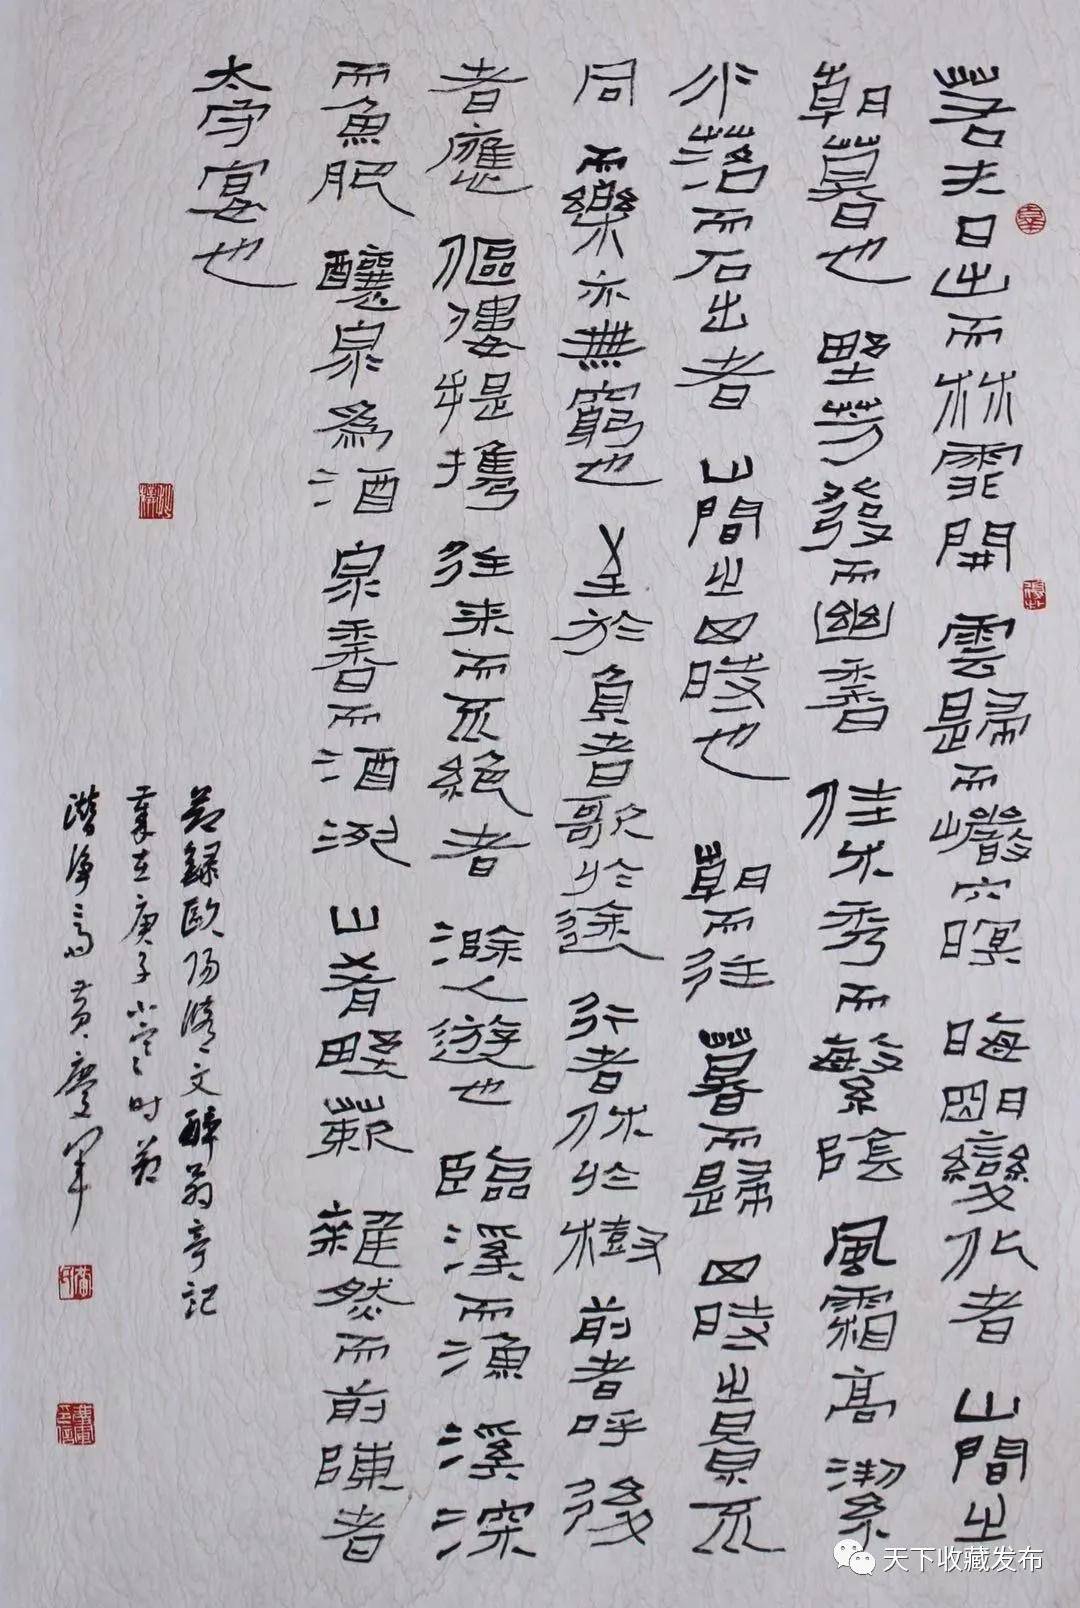 若夫日出而林霏開 雲歸而巖穴暝 晦明變化者 山間之
朝暮也 野芳發而幽香 佳木秀而繁陰 風霜高潔
水落而石出者 山間之四時也 朝而往 暮而歸 四時之景不
同 而樂亦無窮也 至於負者歌於途 行者休於樹 前者呼 後
者應 傴僂提攜 往來而不絕者 滁人遊也 臨溪而漁 溪深
而魚肥 釀泉為酒 泉香而酒洌 山肴野蔌 雜然而前陳者
太守宴也
節錄歐陽脩文醉翁亭記
歲在庚子小寒之时節
潛淨斋黃慶軍
天下收藏发布